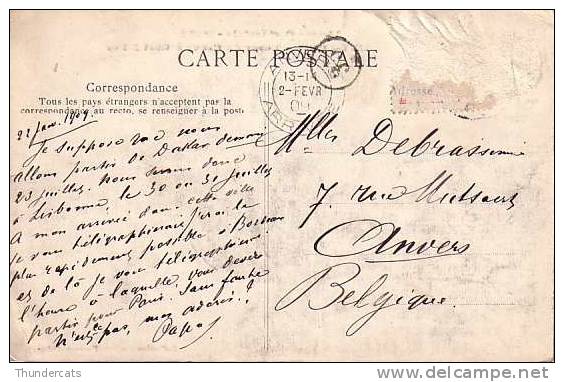 CARTE POSTALE
Correspondance
Tous les pays étrangers n'acceptent pas la
correspondance au recto, se renseigner à la poste
Adresse
13-14
2-FEVR
09
Je suppose que nous
allons partir de Dakar demain
23 juillet. Nous serons donc
à Lisbonne, le 30 ou 31 juillet
A mon arrivée dans cette ville
je vous télégraphierai, j'irai le
plus rapidement possible à Bordeaux
et de là je vous télégraphierai
l'heure à laquelle vous devez
partir pour Paris. Sans faute
n'est ce pas, mon adorée.!
Papa
Mlle Debrassinne
7, rue
Anvers
Belgique.
Thundercats
www.delcampe.net